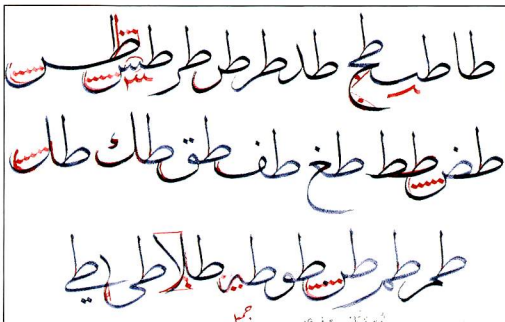 طا طب طج طد طر طر طس طس
طض طط طغ طف طق طك طل
طم طم طن طو طه طلا طى طي
جميل